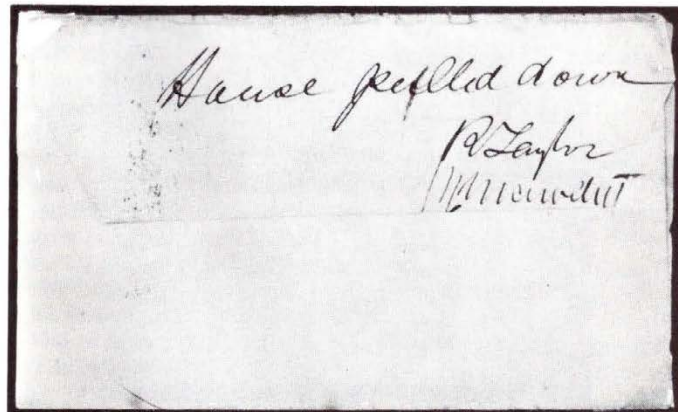 House pulled down
R Taylor